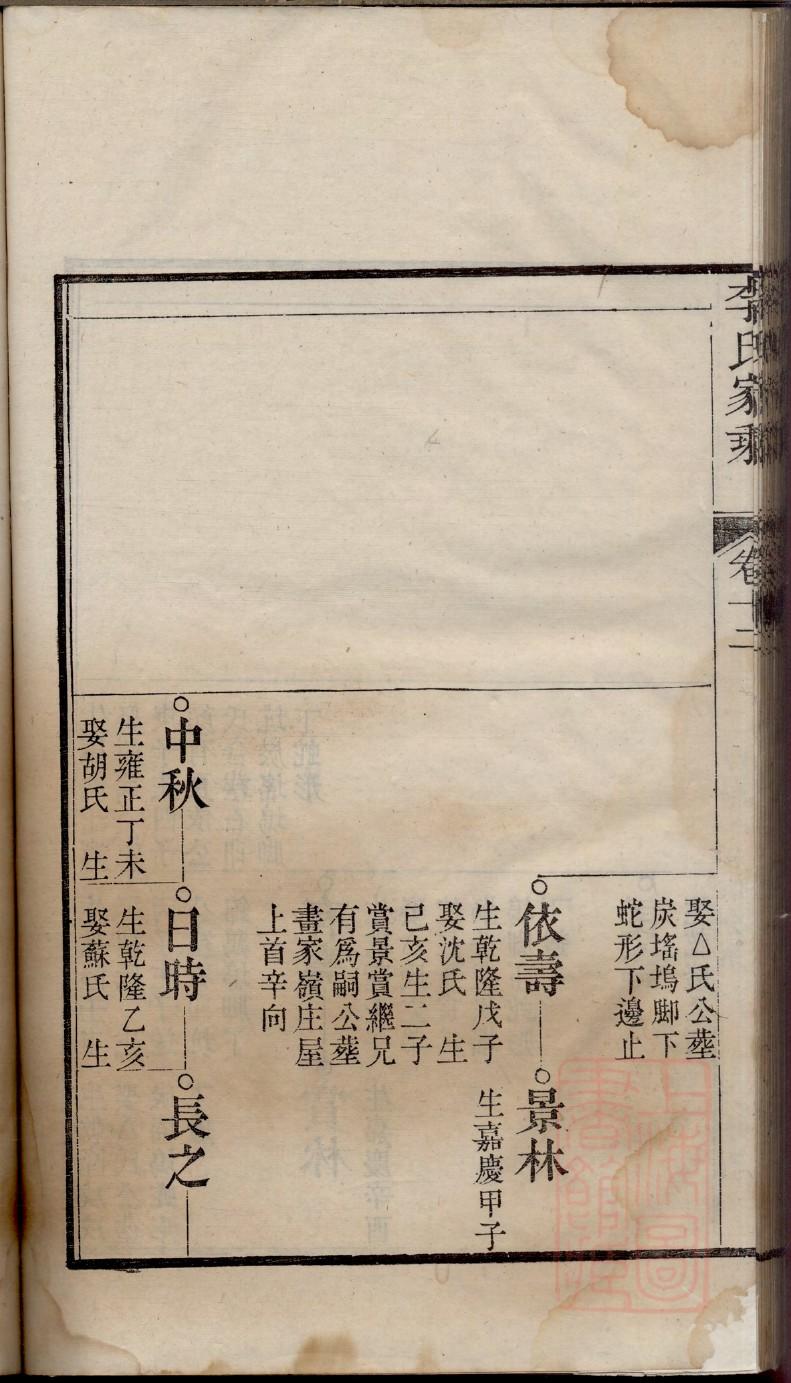 李氏家乘
卷十二
娶△氏公塟
炭塘塢脚下
蛇形下邊止
依壽
生乾隆戊子
娶沈氏 生
己亥生二子
賞景賞繼兄
有爲嗣公塟
畫家嶺庄屋
上首辛向
景林
生嘉慶甲子
中秋
生雍正丁未
娶胡氏 生
日時
生乾隆乙亥
娶蘇氏 生
長之